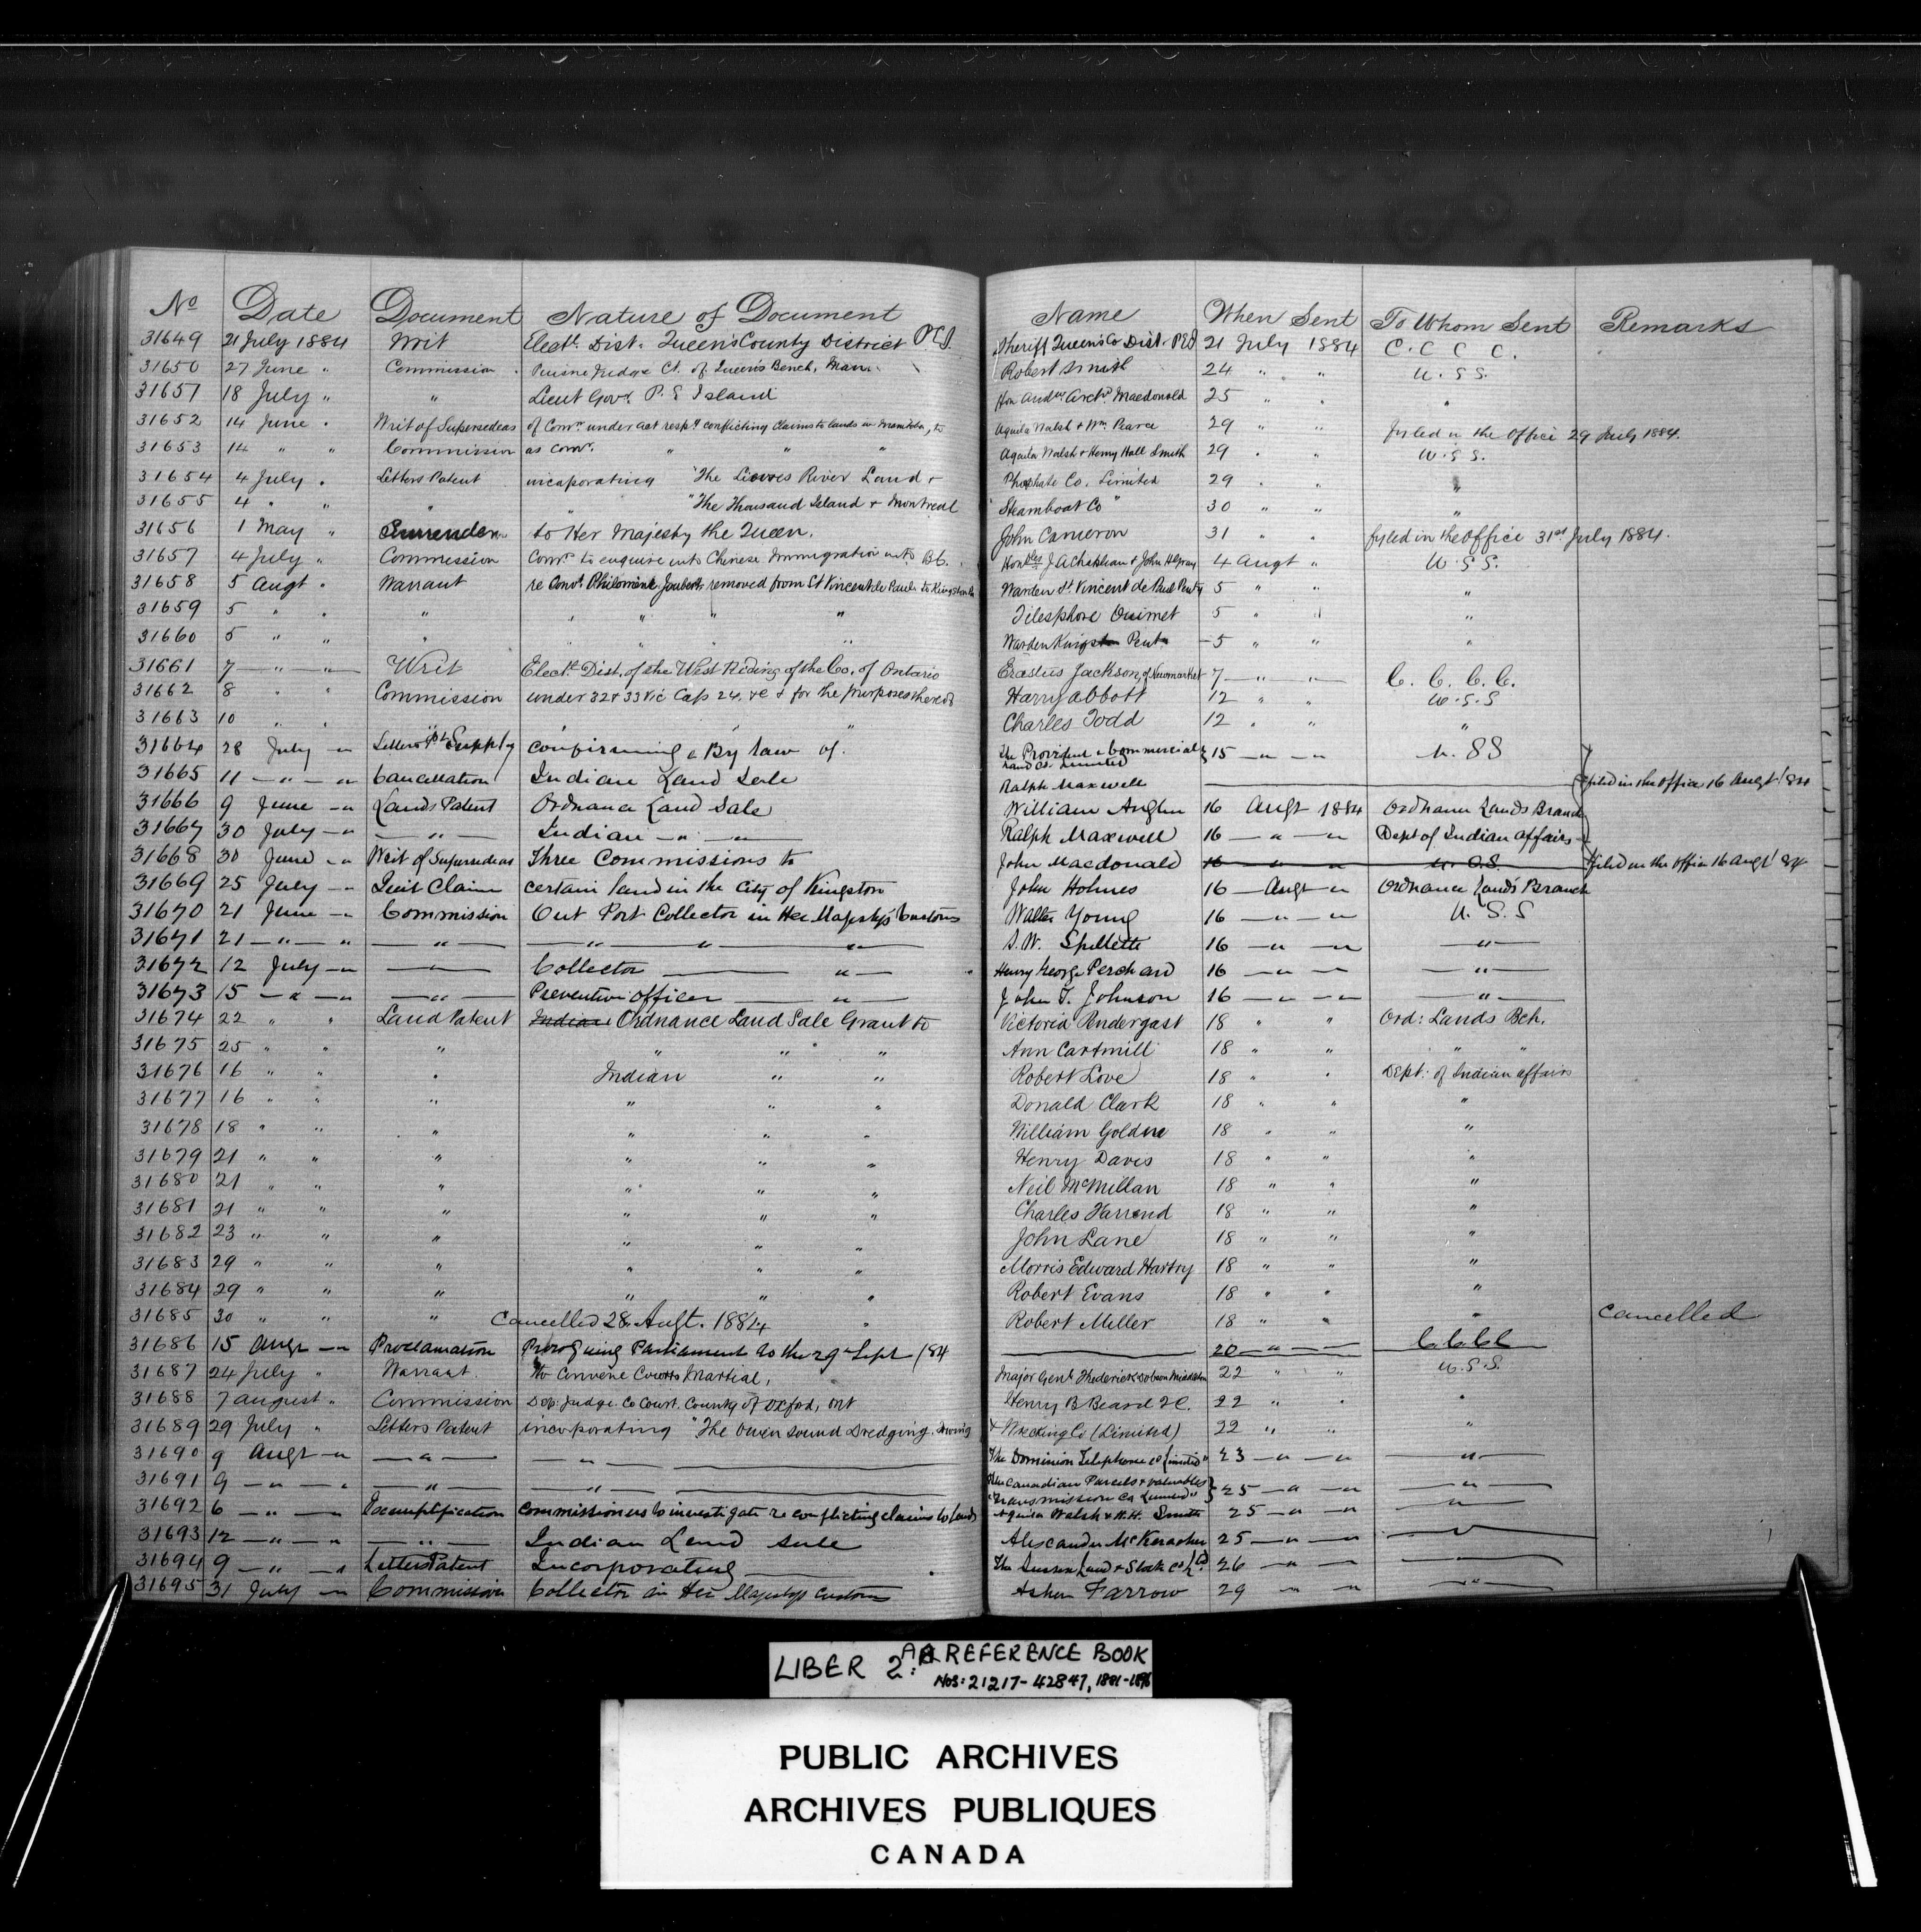 No Date Document Nature of Document Name When Sent To Whom Sent Remarks
31649 21 July 1884 Writ Elect. Dist. Queen's County District P.E.I. Sheriff Queen's Co Dist. P.E.I 21 July 1884 C. C. C. C.
31650 27 June " Commission Puisne Judge Ct. of Queen's Bench, Man. Robert Smith 24 " " U. S. S.
31651 18 July " " Lieut Govr. P. E Island Hon Andw. Archd. Macdonald 25 " " "
31652 14 June " Writ of Supersedeas of Comn. under act respg conflicting claims to lands in Manitoba, to Aquila Walsh & Wm. Pearce 29 " " fyled in the Office 29 July 1884.
31653 14 " " Commission as comr. " " " Aquila Walsh & Henry Hall Smith 29 " " U. S. S.
31654 4 July " Letters Patent incorporating "The Lievres River Land & Phosphate Co. Limited 29 " " "
31655 4 " " " " "The Thousand Island & Montreal Steamboat Co" 30 " " "
31656 1 May " Surrender to Her Majesty the Queen. John Cameron 31 " " fyled in the Office 31st July 1884.
31657 4 July " Commission Comn. to enquire into Chinese Immigration into B.C. Honbles J A Chapleau & John H Gray 4 Augt " U. S. S.
31658 5 Augt " Warrant re Convt. Philomène Joubert removed from St Vincent de Paul to Kingston Warden St. Vincent de Paul Penty 5 " " "
31659 5 " " " " " " " Telesphore Ouimet 5 " " "
31660 5 " " " " Warden Kingston Pent. 5 " " "
31661 7 — " — " — Writ Elect. Dist. of the West Riding of the Co. of Ontario Erastus Jackson, of Newmarket 7 — " — " — C. C. C. C.
31662 8 " " Commission under 32 & 33 Vic Cap 24, &c & for the purposes thereof Harry Abbott 12 " " U. S. S
31663 10 " " " " " Charles Todd 12 " " "
31664 28 July — " Letters Pt Supply confirming a By law of. The Provident & Commercial Land Co. Limited } 15 — " — " U. S S
31665 11 — " — " Cancellation Indian Land Sale Ralph Maxwell — fyled in the Office 16 Augt /84
31666 9 June — " Lands Patent Ordnance Land Sale William Anglin 16 Augt 1884 Ordnance Lands Branch
31667 30 July — " — " — Indian — " — " — Ralph Maxwell 16 — " — " Dept of Indian Affairs
31668 30 June — " Writ of Supersedeas Three Commissions to John Macdonald 16 — " — " U. S. S. filed in the Office 16 Augt /84
31669 25 July — " Quit Claim certain land in the City of Kingston John Holmes 16 — Augt — " Ordnance Lands Branch
31670 21 June — " Commission Out Port Collector in Her Majesty's Customs Walter Young 16 — " — " U. S. S
31671 21 — " — " — " — — " — " — " — S. W. Spillette 16 — " — " — " —
31672 12 July — " — " — Collector — " — Henry George Perchard 16 — " — " — " —
31673 15 — " — " — " — Preventive Officer — " — John T. Johnson 16 — " — " — " —
31674 22 " " Land Patent Indian Ordnance Land Sale Grant to Victoria Pendergast 18 " " Ord: Lands Bch.
31675 25 " " " " " " Ann Cartmill 18 " " " "
31676 16 " " " Indian " " Robert Love 18 " " Dept: of Indian Affairs
31677 16 " " " " " " Donald Clark 18 " " "
31678 18 " " " " " " William Goldne 18 " " "
31679 21 " " " " " " Henry Davis 18 " " "
31680 21 " " " " " " Neil McMillan 18 " " "
31681 21 " " " " " " Charles Farrend 18 " " "
31682 23 " " " " " " John Lane 18 " " "
31683 29 " " " " " " Morris Edward Hartry 18 " " "
31684 29 " " " " " " Robert Evans 18 " " "
31685 30 " " " Cancelled 28 Augt. 1884 " Robert Miller 18 " " " Cancelled
31686 15 Augt — " Proclamation Proroguing Parliament to the 29th Sept /84 — 20 — " — " — C C C C
31687 24 July " Warrant to Convene Courts Martial, Major Genl. Frederick Dobson Middleton 22 " " U. S. S.
31688 7 August " Commission Dep: Judge. Co Court. County of Oxford, Ont Henry B Beard Q.C. 22 " " "
31689 29 July " Letters Patent incorporating "The Owen Sound Dredging & Wrecking Co (Limited) 22 " " "
31690 9 Augt — " — " — — " — The Dominion Telephone Co (limited)" 23 — " — " — " —
31691 9 — " — " — " — — " — The Canadian Parcels & Valuables Transmission Co Limited" } 25 — " — " — " —
31692 6 — " — " Exemplification Commissioners to investigate re conflicting claims to lands Aquila Walsh & H. H. Smith 25 — " — " — " —
31693 12 — " — " — " — Indian Land Sale Alexander McKeracher 25 — " — " — " —
31694 9 — " — " Letters Patent Incorporating — The Sussex Land & Stock Co (Ld) 26 — " — " — " —
31695 31 July — " Commission Collector in Her Majesty's Customs Asher Farrow 29 — " — " — " —
LIBER 2: A REFERENCE BOOK
NOS: 21217-42847, 1881-1896
PUBLIC ARCHIVES
ARCHIVES PUBLIQUES
CANADA